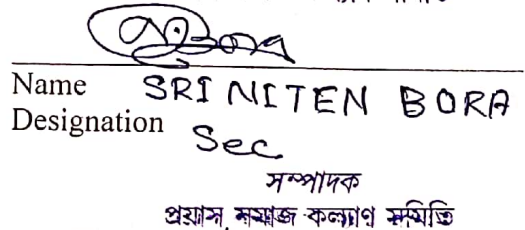 Name SRI NITEN BORA
Designation Sec
সম্পাদক
প্রয়াস সমাজ কল্যাণ সমিতি